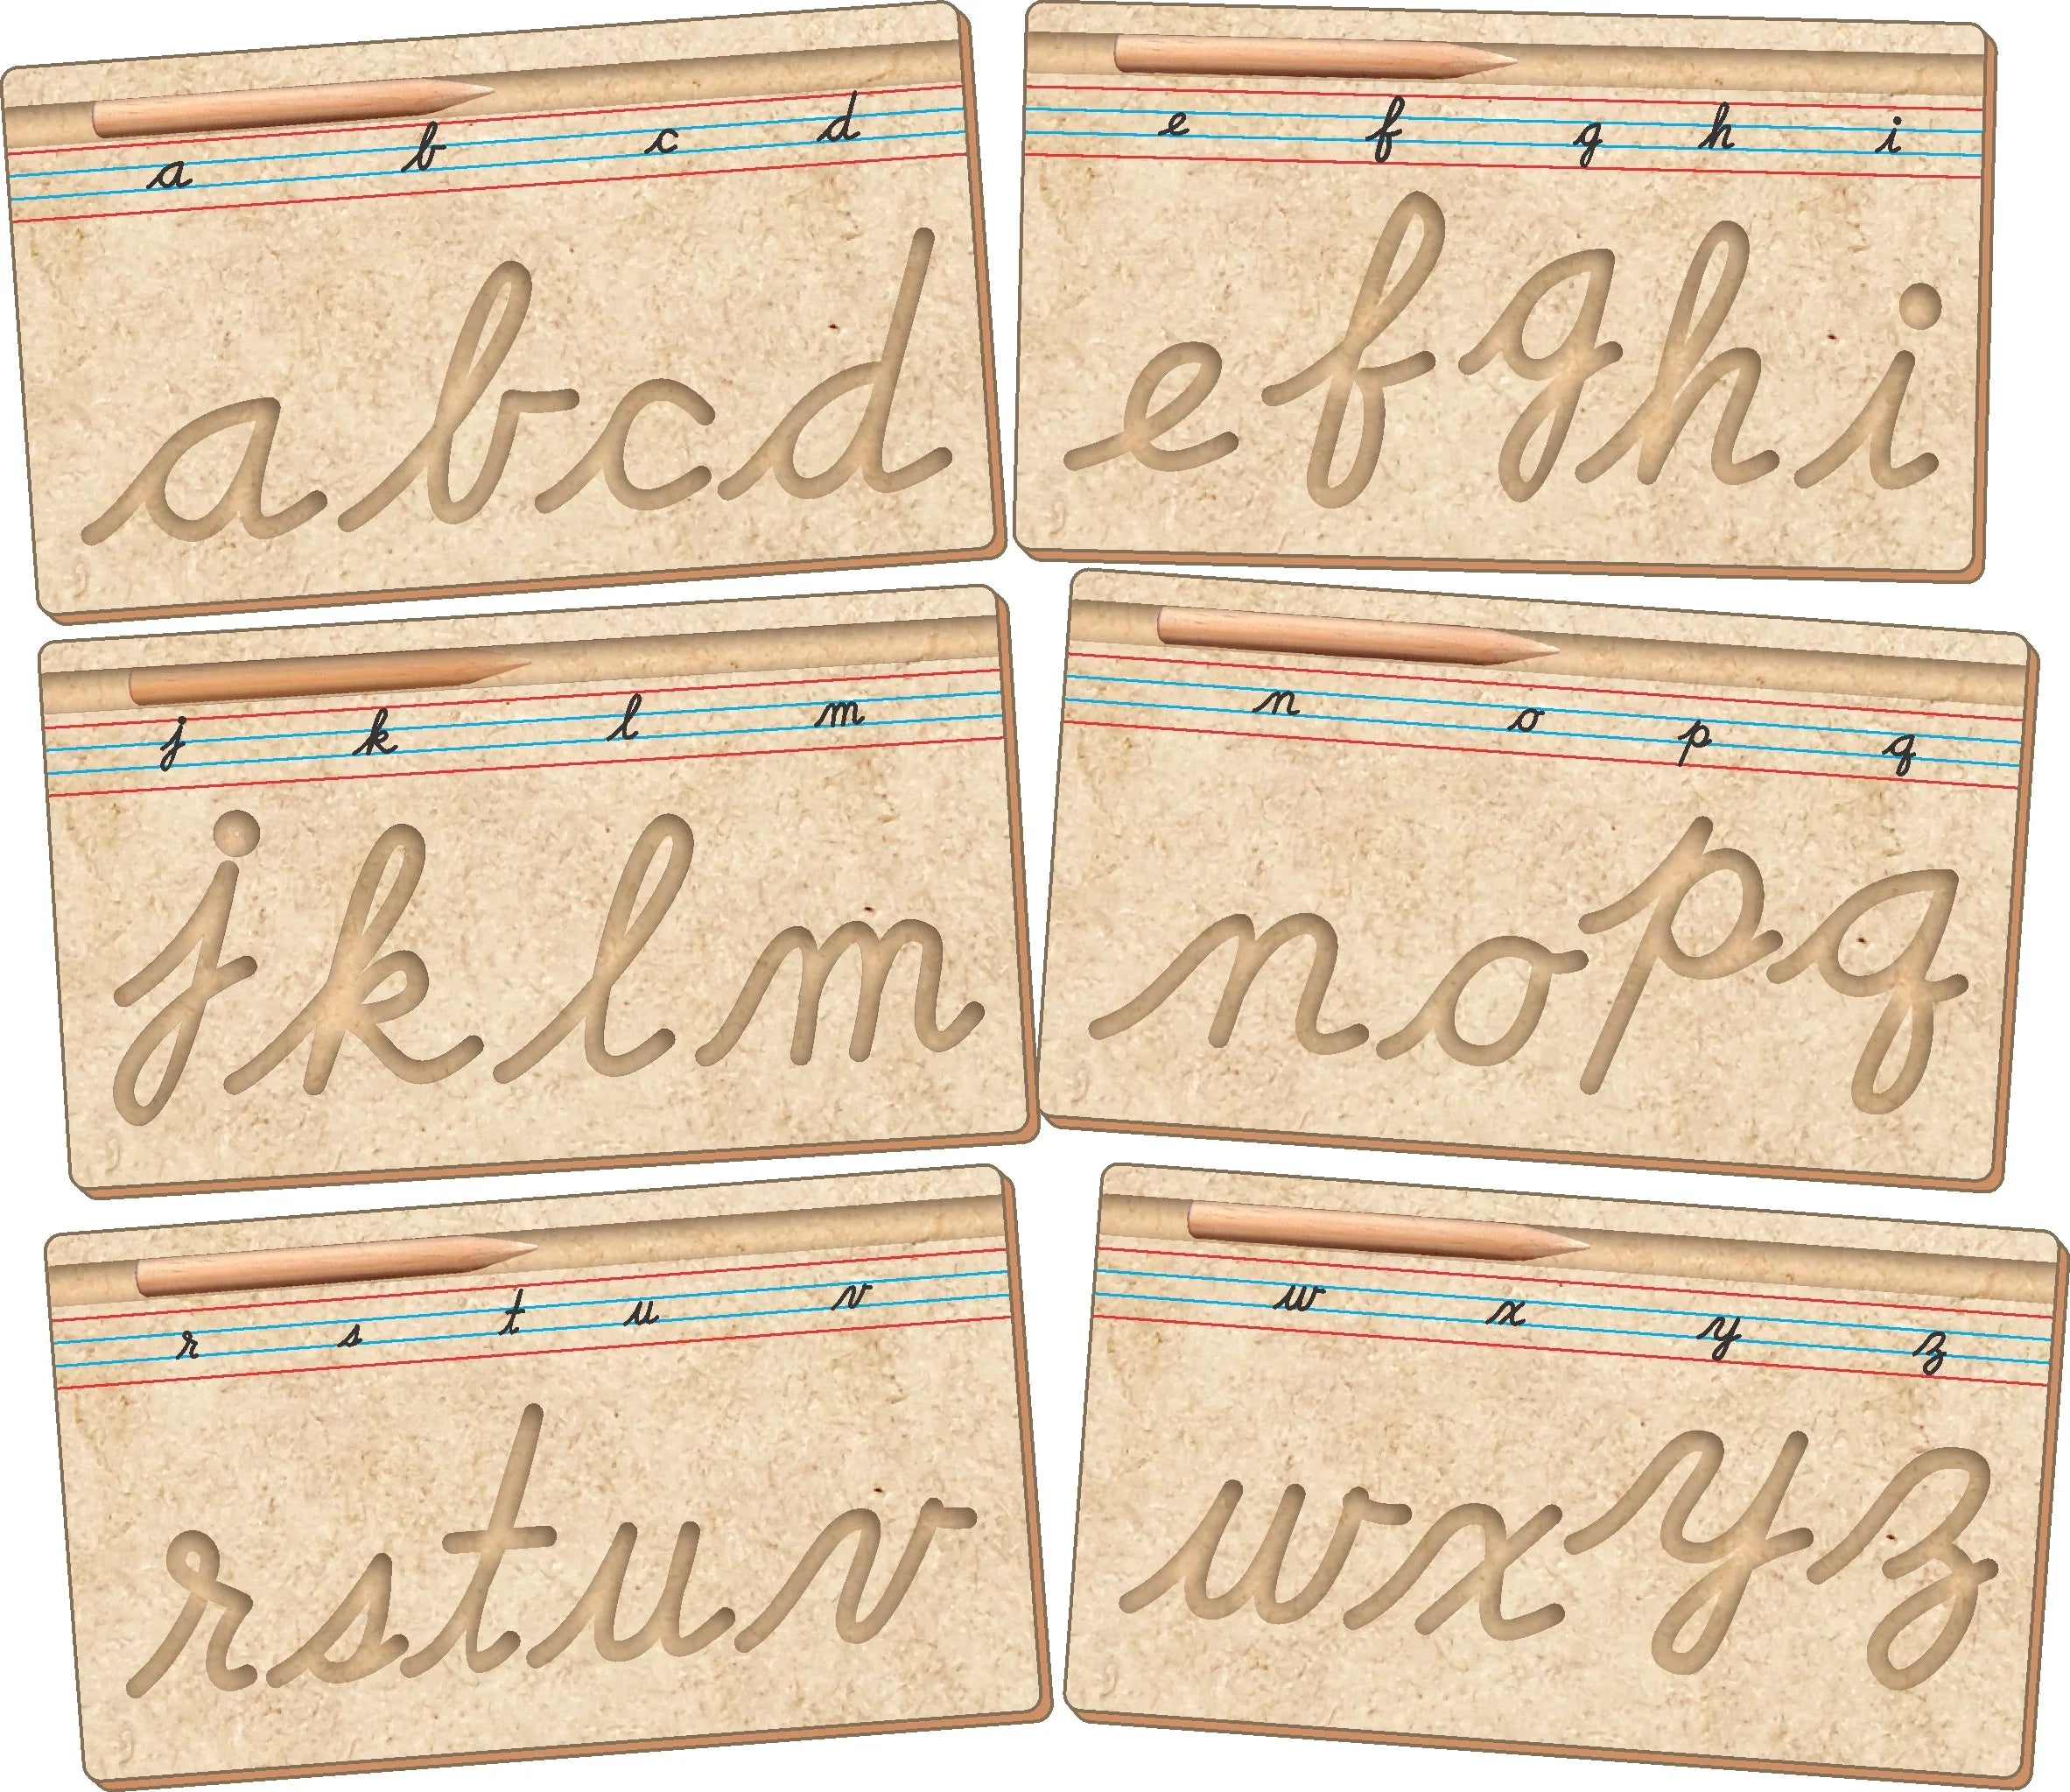 a b c d
a b c d
e f g h i
e f g h i
j k l m
j k l m
n o p q
n o p q
r s t u v
r s t u v
w x y z
w x y z